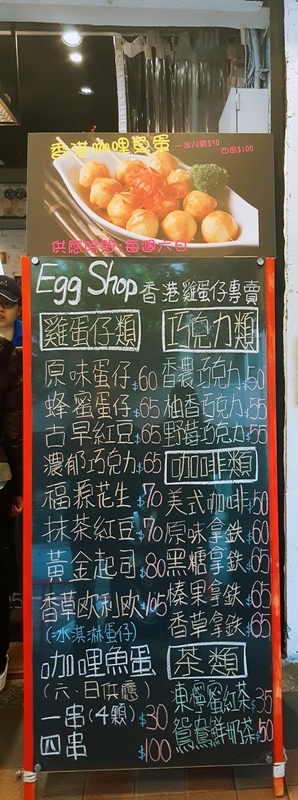 香港咖哩魚蛋 一串/4顆$30 四串$100
供應時間:每週六日
Egg Shop 香港雞蛋仔專賣
雞蛋仔類
原味蛋仔$60
蜂蜜蛋仔$65
古早紅豆$65
濃郁巧克力$65
福源花生$70
抹茶紅豆$70
黃金起司$80
香草欧利欧$105
(冰淇淋蛋仔)
咖哩魚蛋
(六、日供應)
一串(4顆)$30
四串 $100
巧克力類
香濃巧克力$50
柚香巧克力$55
野莓巧克力$55
咖啡類
美式咖啡$50
原味拿鉄$60
黑糖拿鉄$65
榛果拿鉄$65
香草拿鉄$65
茶類
東檸蜜紅茶$35
鴛鴦鮮奶茶$50